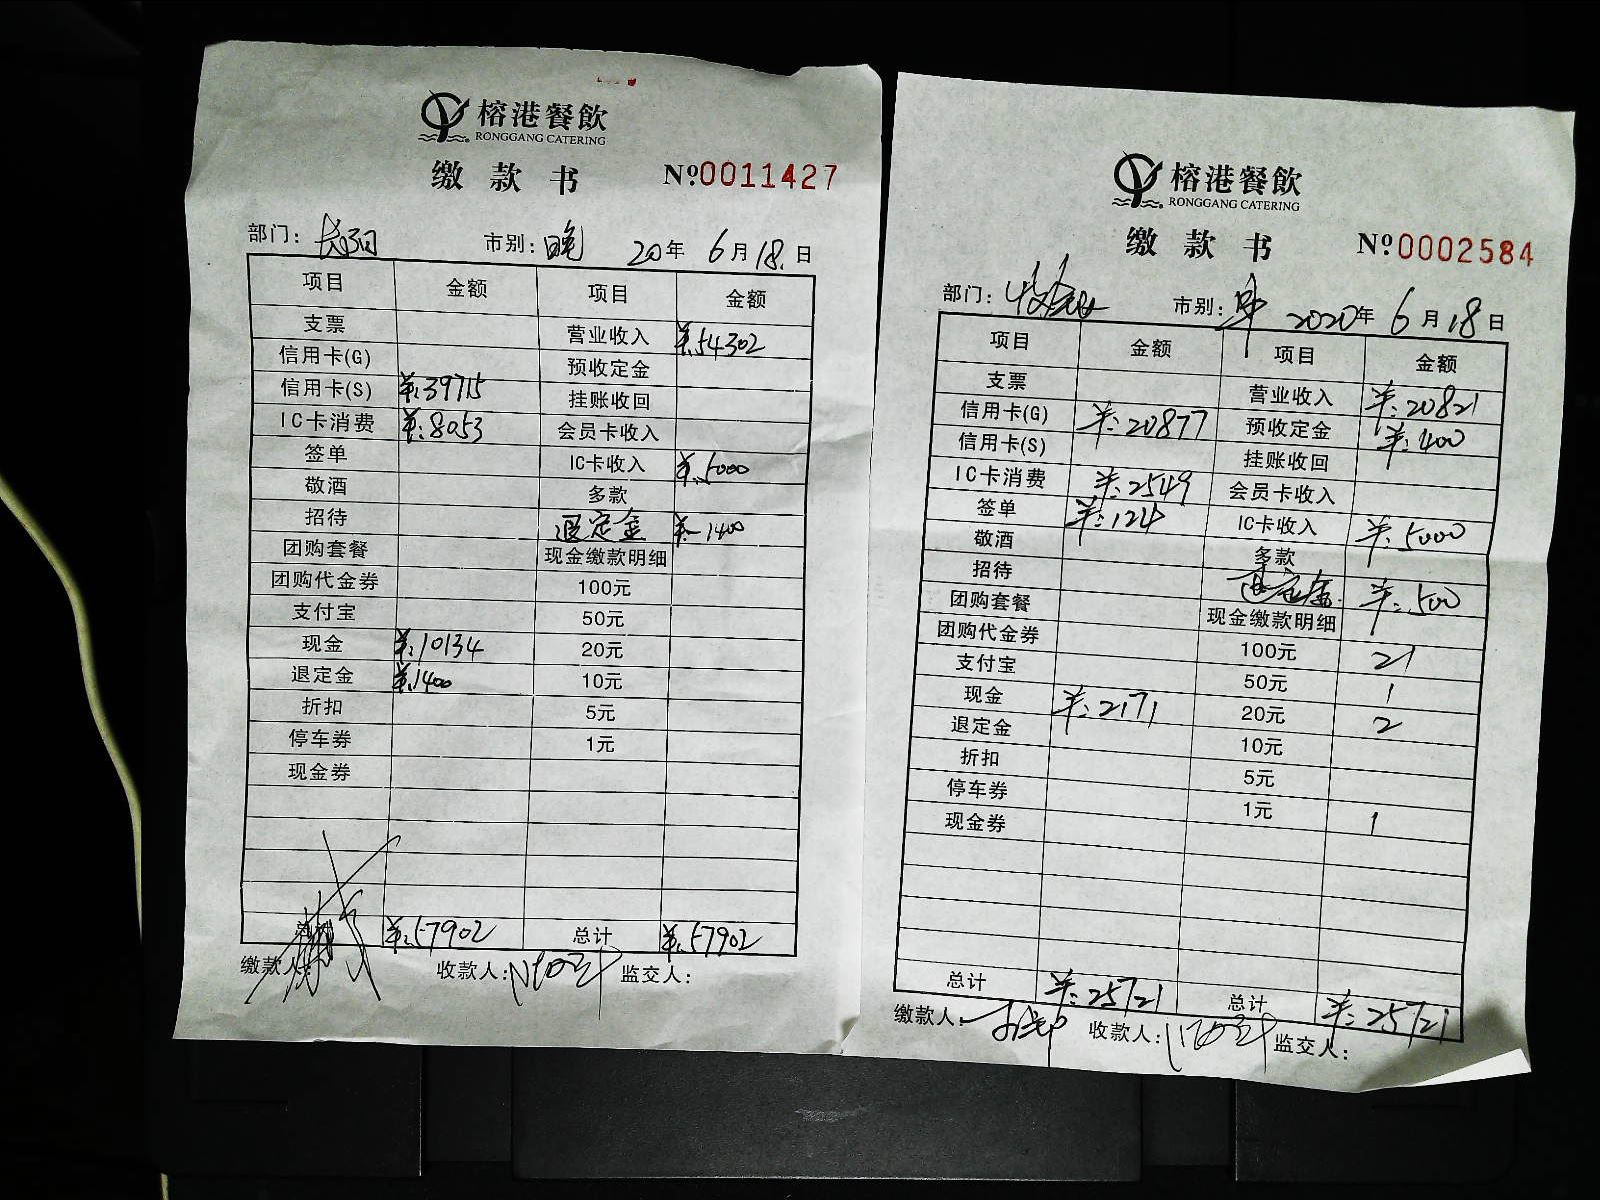 榕港餐飲
RONGGANG CATERING
缴款书 №0011427
部门: 市别: 晚 20年 6月 18日
项目 金额 项目 金额
支票 营业收入 ¥:54302
信用卡(G) 预收定金
信用卡(S) ¥:39715 挂账收回
IC卡消费 ¥:8053 会员卡收入
签单 IC卡收入 ¥:5000
敬酒 多款
招待 退定金 ¥:-1400
团购套餐 现金缴款明细
团购代金券 100元
支付宝 50元
现金 ¥:10134 20元
退定金 ¥:1400 10元
折扣 5元
停车券 1元
现金券
¥:57902 总计 ¥:57902
缴款人: 收款人: 监交人:
榕港餐飲
RONGGANG CATERING
缴款书 №0002584
部门: 市别: 2020年 6月 18日
项目 金额 项目 金额
支票 营业收入 ¥:20821
信用卡(G) ¥:20877 预收定金 ¥:400
信用卡(S) 挂账收回
IC卡消费 ¥:2549 会员卡收入
签单 ¥:124 IC卡收入 ¥:5000
敬酒 多款
招待 退定金 ¥:-500
团购套餐 现金缴款明细
团购代金券 100元 21
支付宝 50元 1
现金 ¥:2171 20元 2
退定金 10元
折扣 5元
停车券 1元 1
现金券
总计 ¥:25721 总计 ¥:25721
缴款人: 收款人: 监交人: